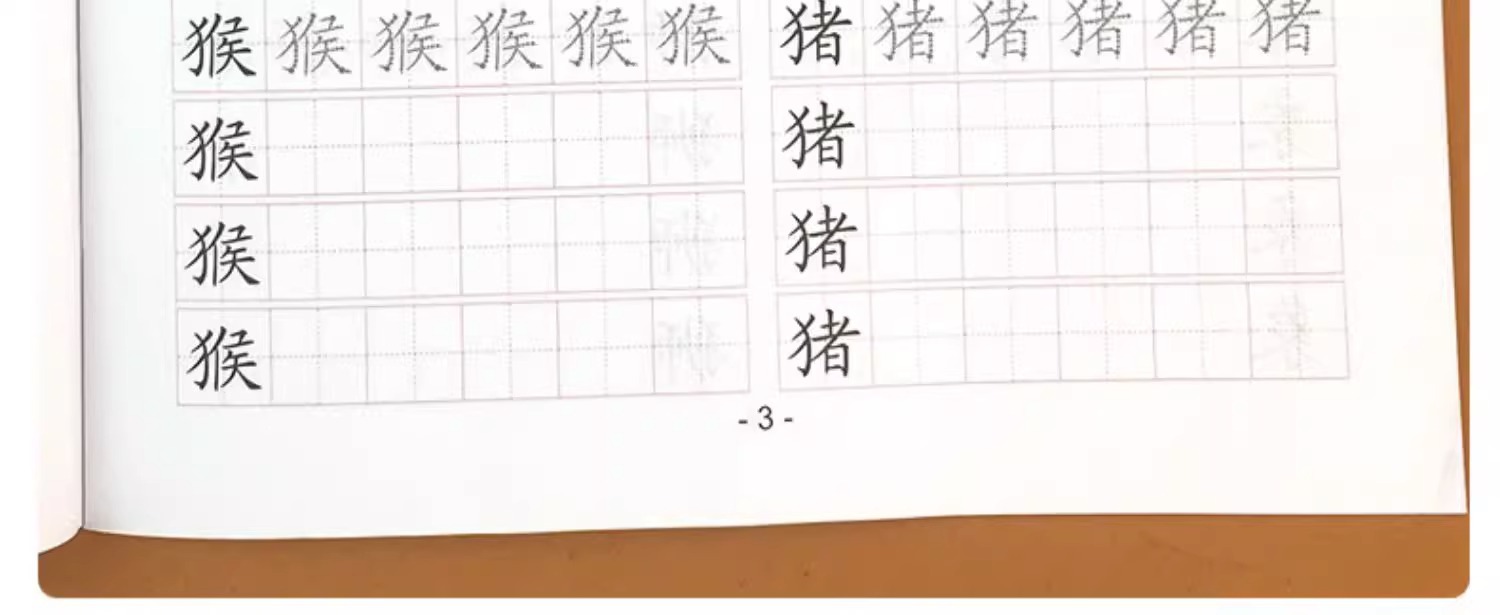 猴猴猴猴猴猴 猪猪猪猪猪猪
猴 猪
猴 猪
猴 猪
- 3 -